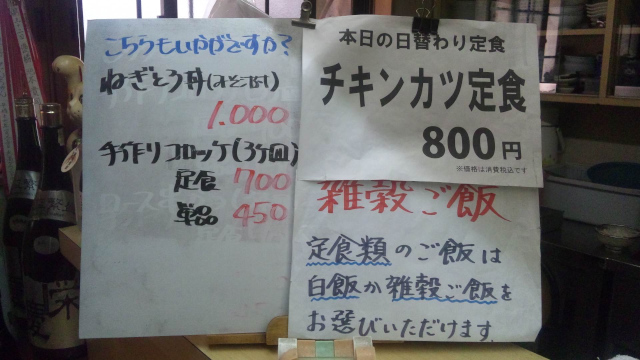 こちらもいかがですか?
ねぎとろ丼(みそ汁付)
1.000
手作りコロッケ(3ヶ皿)
定食 700
単品 450
本日の日替わり定食
チキンカツ定食
800円
※価格は消費税込です
雑穀ご飯
定食類のご飯は
白飯か雑穀ご飯を
お選びいただけます